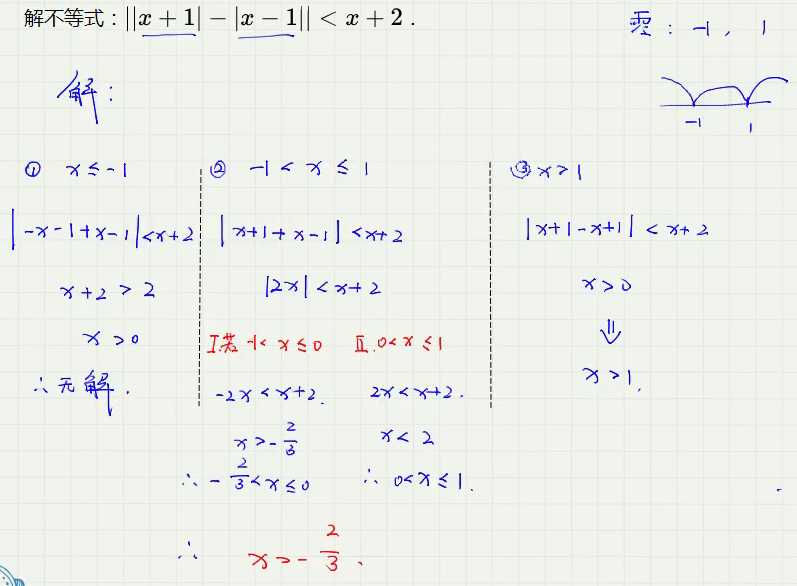 解不等式：||x+1|−|x−1||<x+2．
零：-1， 1
解：
-1 1
① x≤-1
|-x-1+x-1|<x+2
x+2>2
x>0
∴无解．
② -1<x≤1
|x+1+x-1|<x+2
|2x|<x+2
I.若-1<x≤0 II.0<x≤1
-2x<x+2. 2x<x+2.
x>-2/3 x<2
∴-2/3<x≤0 ∴0<x≤1.
③ x>1
|x+1-x+1|<x+2
x>0
⇓
x>1.
∴ x>-2/3.